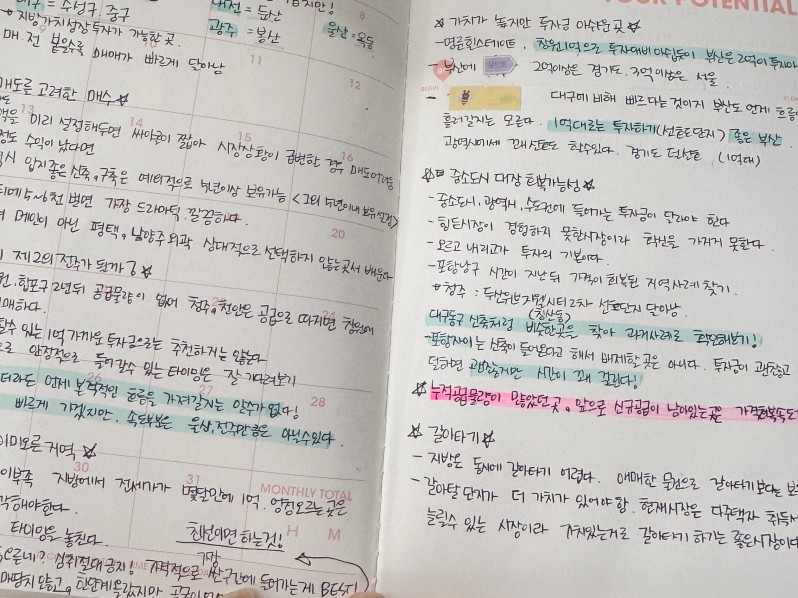 대구 = 수성구, 중구
지방가치성장투자가 가능한 곳.
매.전 물을 매매가 빠르게 달아남
대전 = 둔산
광주 = 봉산
울산 = 옥동
8
11
12
매도를 고려한 매수 ☆
13
14
15
16
미리 설정해두면 싸이클이 짧아 시장상황이 급변한 경우 매도어려움
정도 수익이 났다면
입지좋은 신축, 구축은 예외적으로 4년이상 보유가능 <그외 4년이내 보유설정>
5~6천 벌면 가장 드라마틱. 깔끔하다.
20
메인이 아닌 평택, 남양주 외곽 상대적으로 선택하지 않는곳서 배운다
제2의 전주가 됐까? ☆
창원, 합포구 2년뒤 공급물량이 없어 청주, 천안은 공급으로 따지면 창원에
24
매하다.
할수 있는 1억 가까운 투자금으로는 추천하지는 않는다
안정적으로 들어갈수 있는 타이밍을 잘 기다려보기
26
27
28
더라도 언제 본격적인 흐름을 가져갈지는 알수가 없다!
빠르게 가겠지만. 속도부분은 울산, 전주만큼은 아닐수있다.
이미오른 지역 ☆
30
31
MONTHLY TOTAL
이부족 지방에서 전세가가 몇달만에 1억. 엉성오르는곳은
각해야한다.
H M
타이밍을 놓친다.
최선이면 하는것!
가장
오른네? 섬취절대금지! 가격적으로 싼구간에 들어가는게 BEST!
마땅치않고, 한단계올랐지만
YOUR POTENTIAL
☆ 가치가 높지만 투자금 아쉬운곳 ☆
- 명곡힐스테이트. 창원1억으로 투자에 아쉽듯이 부산은 2억이 투자아
- 부산에 2억이상은 경기도. 3억이상은 서울
- 대구에 비해 빠르다는것이지 부산도 언제 흐름
흘러갈지는 모른다. 1억대로는 투자하기(선호단지) 좋은 부산.
광역시에서 꽤선호도 할수있다. 경기도 덜선호 (1억대)
☆ 중소도시 대장 회복가능성 ☆
- 중소도시, 광역시, 수도권에 들어가는 투자금이 달라야 한다
- 힘든시장이 경험하지 못한시장이라 확신을 가지지 못한다.
- 오르고 내리고가 투자의 기본이다.
- 포항남구 시간이 지난뒤 가격이 회복된 지역사례 찾기.
청주 : 두산위브지웰시티 2차 선호단지 달아남.
(침산동)
대구동구 신축처럼 비슷한곳을 찾아 과거사례로 확인해보기!
- 포항자이는 신축이 들어온다고 해서 배제할곳은 아니다. 투자금이 괜찮고
덜하면 괜찮을거란 시간이 꽤 걸린다!
☆ 누적공급물량이 많았던곳, 앞으로 신규공급이 남아있는곳은 가격회복속도
☆ 갈아타기 ☆
- 지방은 동시에 갈아타기 어렵다. 애매한 물건으로 갈아타기보다는 보
- 갈아탈 단지가 더 가치가 있어야 함. 현재시장은 다주택자 취득세
늘릴수 있는 시장이라 가치있는거로 갈아타기 하기는 좋은시장이다